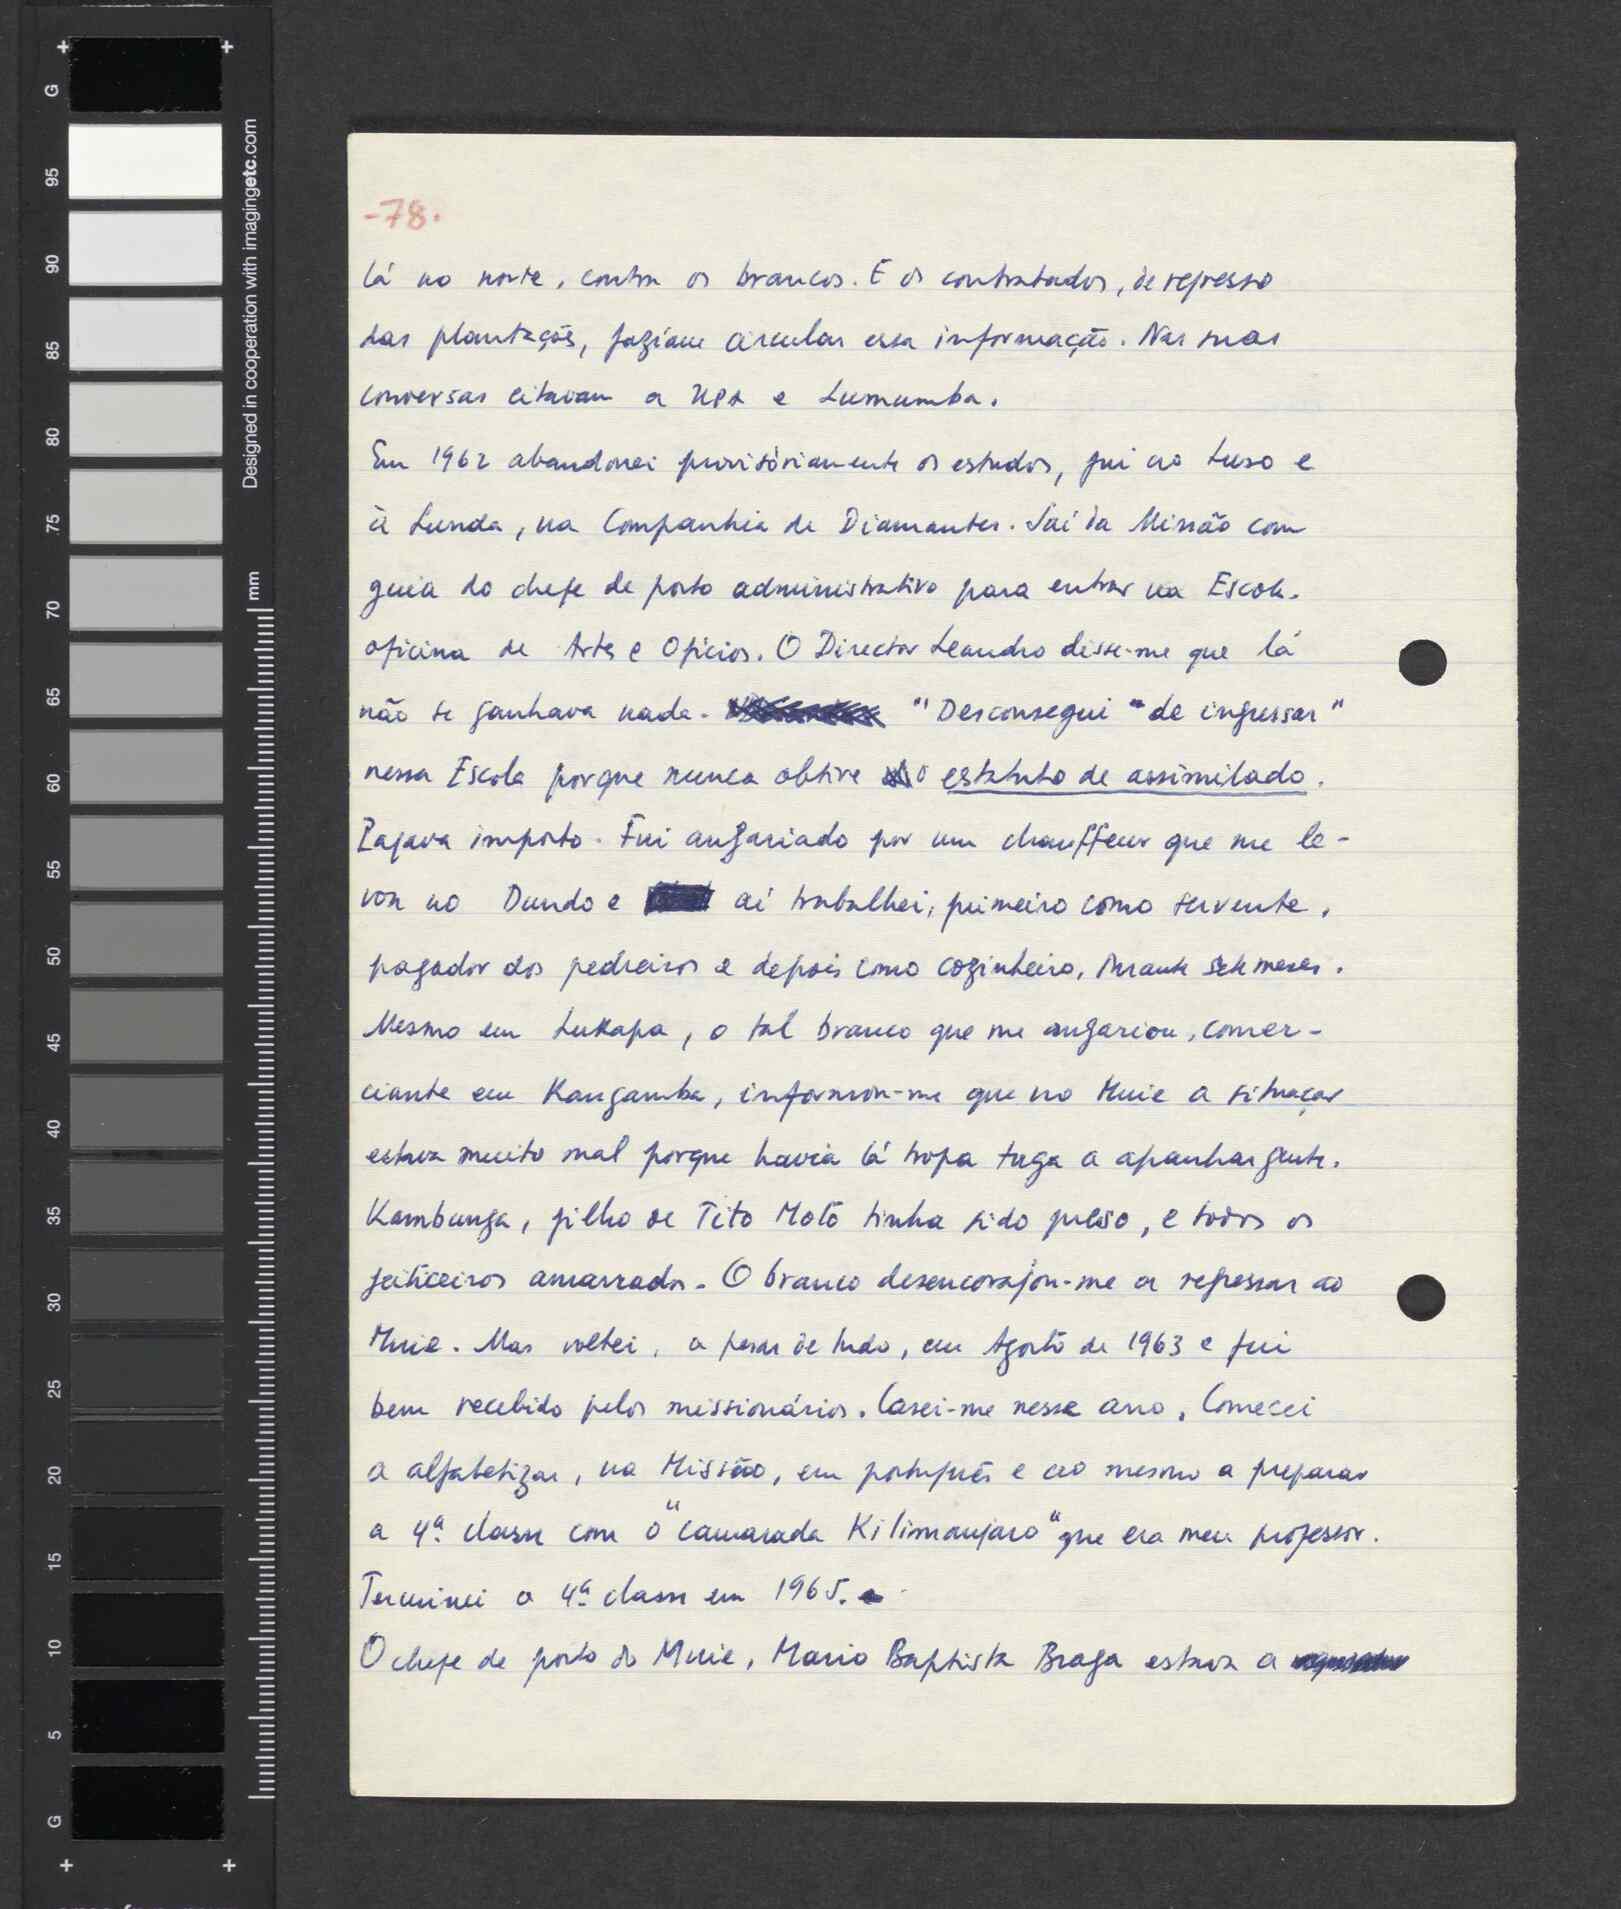 -78.
lá no norte, contra os brancos. E os contratados, de regresso
das plantações, faziam circular essa informação. Nas suas
conversas citavam a UPA e Lumumba.
Em 1962 abandonei provisòriamente os estudos, fui ao Luso e
à Lunda, na Companhia de Diamantes. Saí da Missão com
guia do chefe de posto administrativo para entrar na Escola.
oficina de Artes e Ofícios. O Director Leandro disse-me que lá
não se ganhava nada. "Desconsegui" de ingressar"
nessa Escola porque nunca obtive o estatuto de assimilado.
Pagava imposto. Fui angariado por um chauffeur que me le-
vou ao Dundo e aí trabalhei, primeiro como servente,
pagador dos pedreiros e depois como cozinheiro, durante sete meses.
Mesmo em Lukapa, o tal branco que me angariou, comer-
ciante em Kangamba, informou-me que no Muie a situação
estava muito mal porque havia lá tropa tuga a apanhar gente.
Kambunga, filho de Tito Motõ tinha sido preso, e todos os
feiticeiros amarrados. O branco desencorajou-me a regressar ao
Muie. Mas voltei, a pesar de tudo, em Agosto de 1963 e fui
bem recebido pelos missionários. Casei-me nesse ano. Comecei
a alfabetizar, na Missão, em português e ao mesmo a preparar
a 4ª classe com o "camarada Kilimanjaro" que era meu professor.
Terminei a 4ª classe em 1965.
O chefe de posto do Muie, Mario Baptista Braga estava a